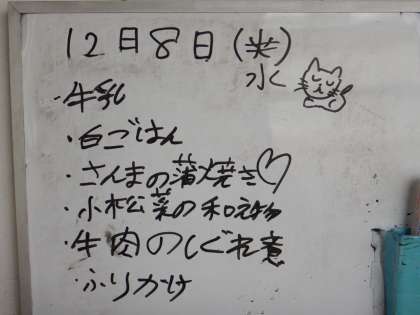 12月8日(水)
・牛乳
・白ごはん
・さんまの蒲焼き♡
・小松菜の和え物
・牛肉のしぐれ煮
・ふりかけ